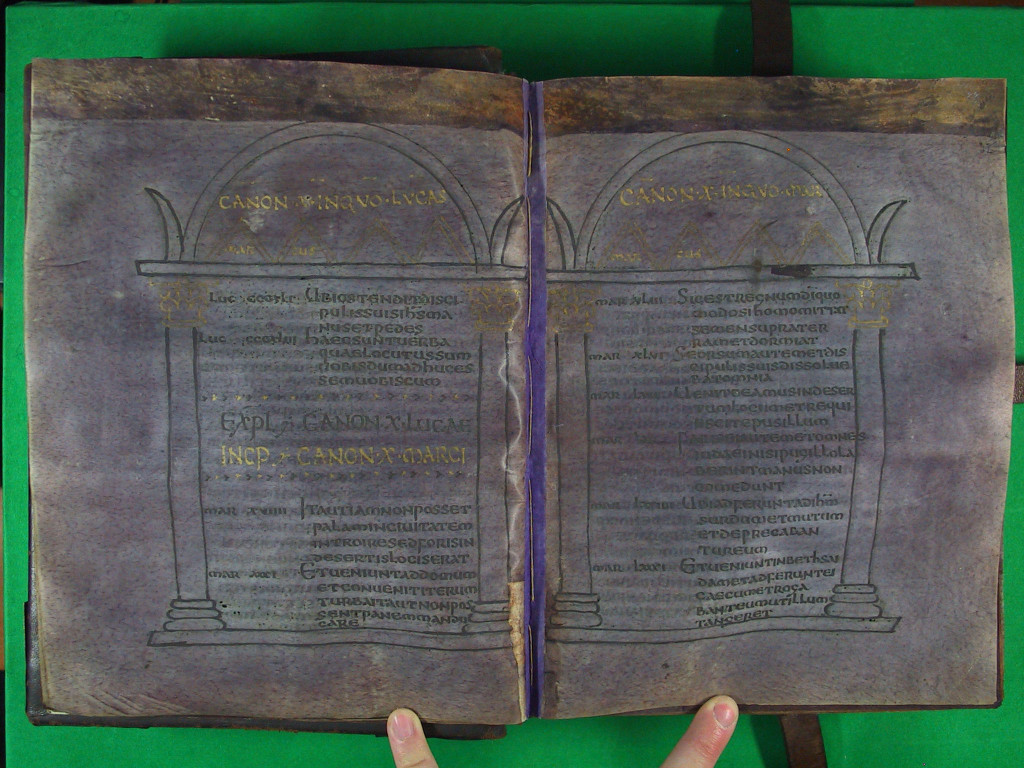 CANON X INQUO LUCAS
MAR CUS
LUC CCCXLI UBIOSTENDERDISCI
PULISSUISIHSMA
NUSETPEDES
LUC CCCXLII HAECSUNTUERBA
QUAELOCUTUSSUM
NOBISDUMADHUCES
SEMUOBISCUM
EXPL CANON X LUCAE
INCP CANON X MARCI
MAR XVIIII ITAUTIAMNONPOSSET
PALAMINCIUITATEM
INTROIRESEDFORISIN
DESERTISLOCISERAT
MAR XXXI ETUENIUNTADDOMUM
ETCONUENITITERUM
TURBAITAUTNONPOS
SENTPANEMMANDU
CARE
CANON X INQUO MAR
MAR CUS
MAR XLIII SICESTREGNUMDIQUO
MODOSIHOMOMITTAT
SEMENSUPRATER
RAMETDORMIAT
MAR XLVI SEORSUMAUTEMDIS
CIPULISSUISDISSOLUE
BATOMNIA
MAR UENITEAMUSINDESER
TUMLOCUMETREQUI
ESCITEPUSILLUM
MAR PHARISAEIAUTEMETOMNES
IUDAEINISIPUGILLOLA
UERINTMANUSNON
COMEDUNT
MAR LXXIIII UBIADFERUNTADIHM
SURDUMETMUTUM
ETDEPRECABAN
TUREUM
MAR LXXXI ETUENIUNTINBETHSAI
DAMETADFERUNTEI
CAECUMETROGA
BANTEUMUTILLUM
TANGERET